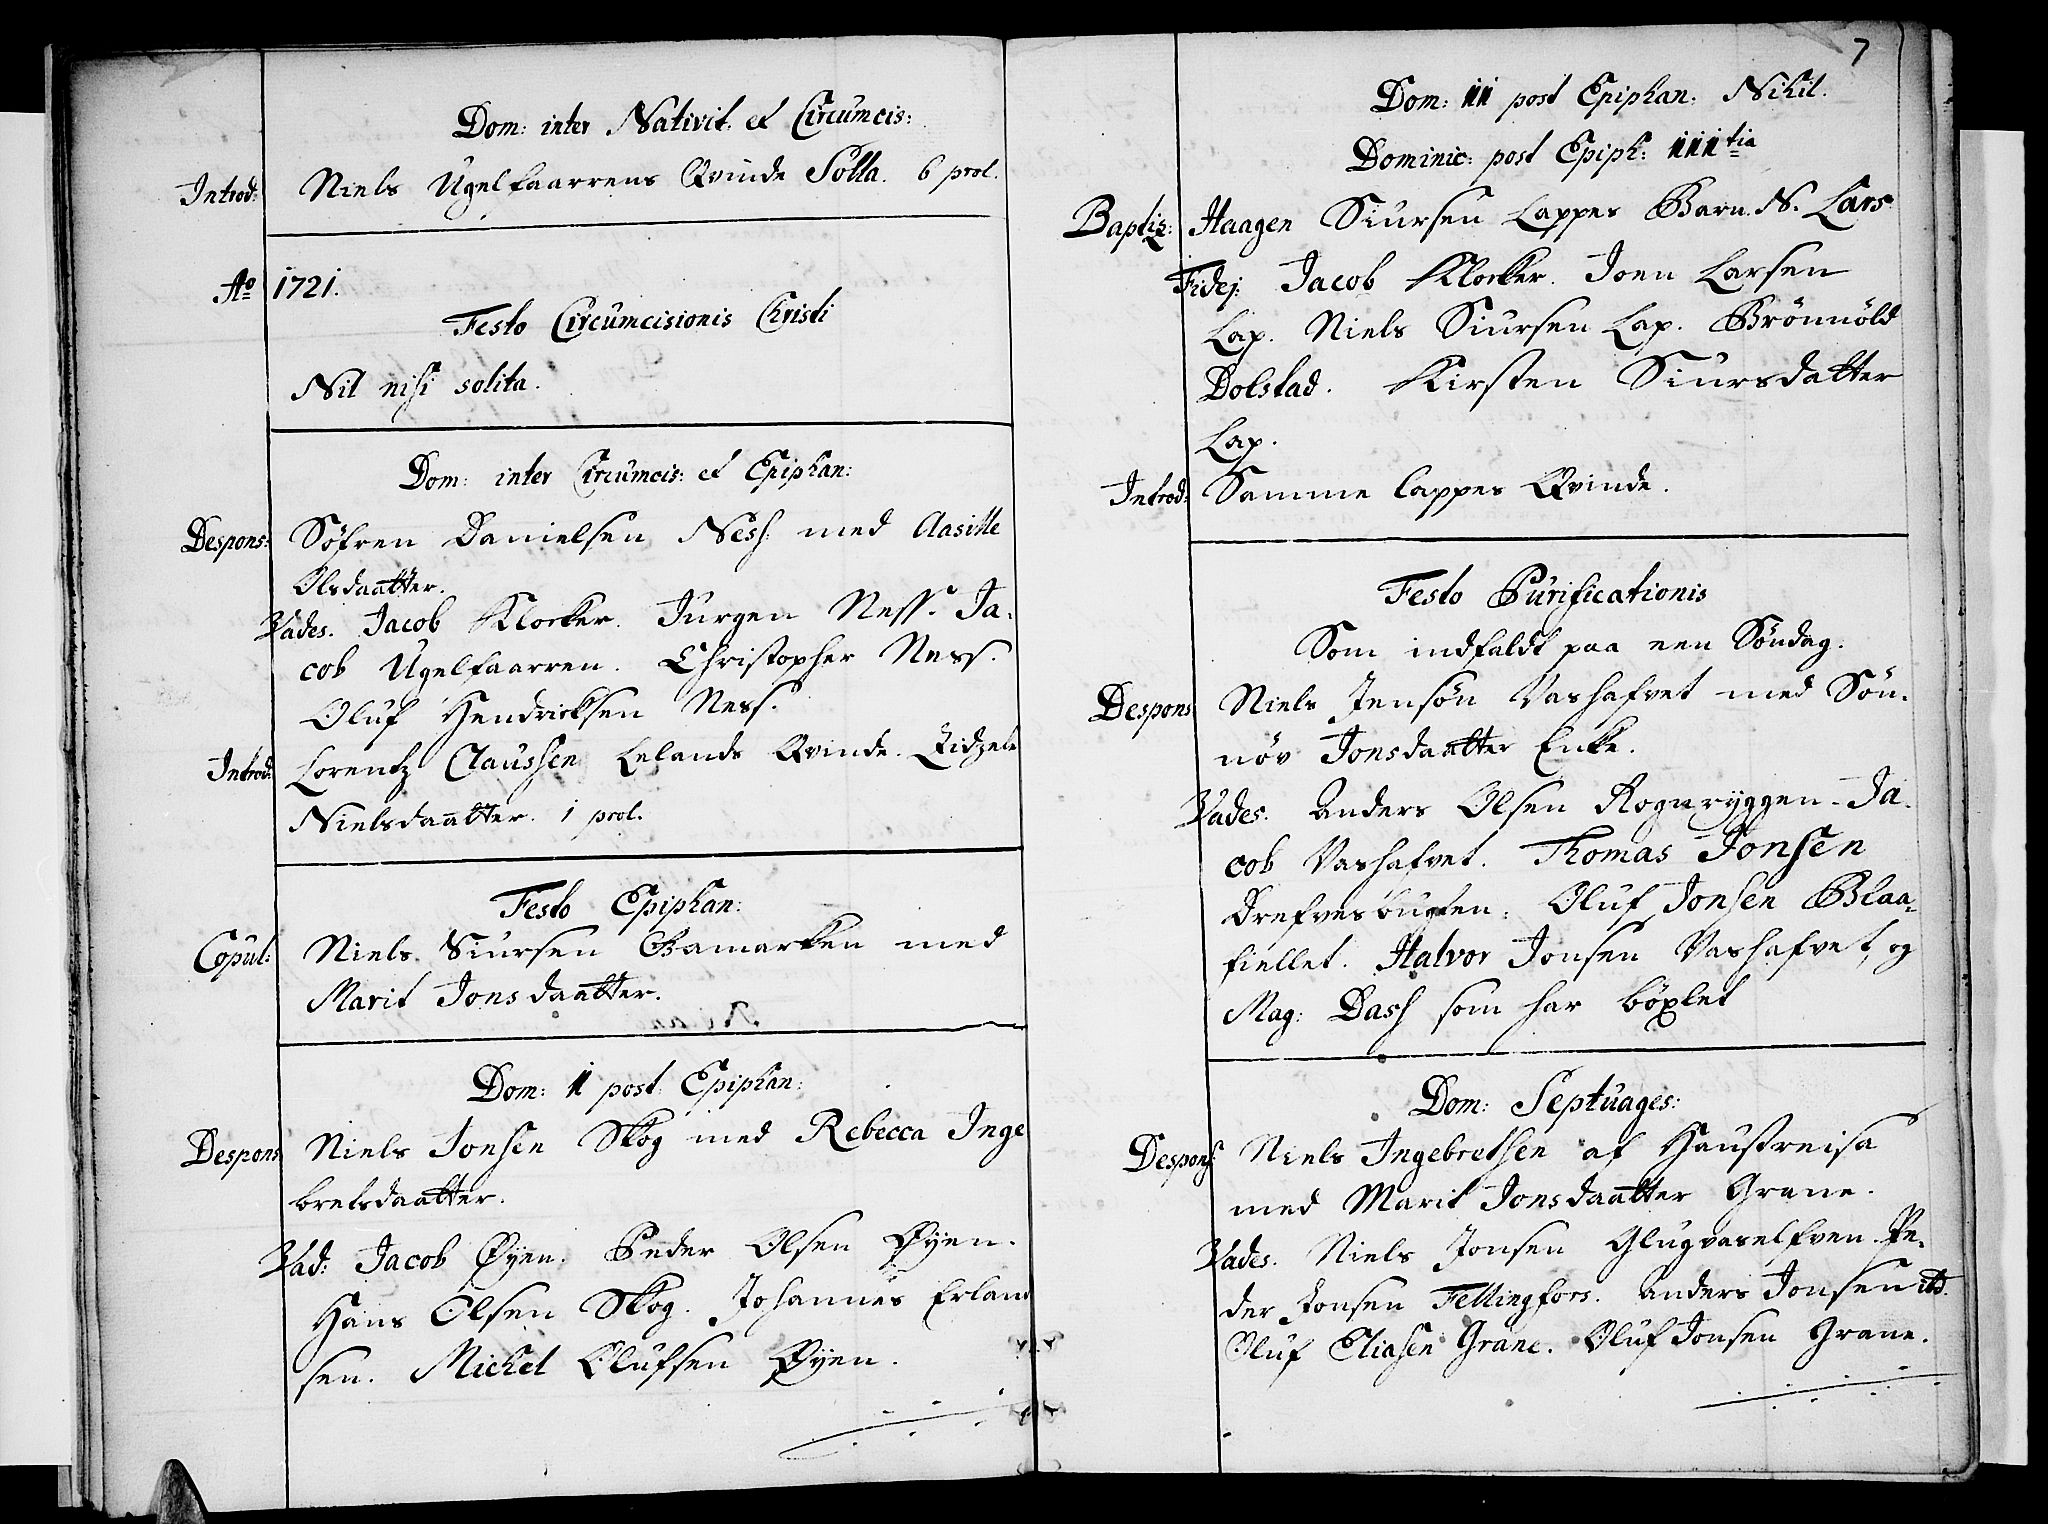 Dom: inter Nativit: et Circumcis:
Introd: Niels Ugelfaarens Qvinde Solla. 6 prol.
Ao 1721.
Festo Circumcisionis Christi
Nil nisi solita.
Dom: inter Circumcis: et Epiphan:
Despons: Söfren Danielsen Ness: med Aasille
Olsdaatter.
Vades. Jacob Klocker. Jürgen Ness. Ja-
cob Ugelfaarren. Christopher Ness.
Oluf Hendricksen Ness.
Introd: Lorentz Claussen Lelands Qvinde Zidzele
Nielsdaatter. 1 prol.
Festo Epiphan:
Copul: Niels Siursen Bamarken med
Marit Jonsdaatter.
Dom: I post Epiphan:
Despons Niels Jonsen Skog med Rebecca Inge
bretsdaatter.
Vad: Jacob Øyen. Peder Olsen Øyen.
Hans Olsen Skog. Johannes Erland
sen. Michel Olufsen Øyen.
7
Dom: II post Epiphan: Nihil.
Dominic: post Epiph: III tia
Baptiz: Haagen Siursen Lappes Barn. N. Lars
Fidej: Jacob Klocker. Joen Larsen
Lap. Niels Siursen Lap. Brönnöld
Dolstad. Kirsten Siursdatter
Lap.
Introd: Samme Lappes Qvinde.
Festo Purificationis
Som indfaldt paa een Söndag.
Despons Niels Jensön Vashafvet med Sön-
növ Jonsdaatter Enke.
Vades. Anders Olsen Rognryggen. Ja-
cob Vashafvet. Thomas Jonsen
Drefvesbugten. Oluf Jonsen Blaa-
fiellet. Halvor Jonsen Vashafvet, og
Mag: Dass som har böxlet
Dom: Septuages:
Despons: Niels Ingebretsen af Haustreisa
med Marit Jonsdaatter Grane.
Vades. Niels Jonsen Glugvaselfven. Pe-
der Jonsen Fellingfors. Anders Jonsen ibd.
Oluf Eliasen Grane. Oluf Jonsen Grane.